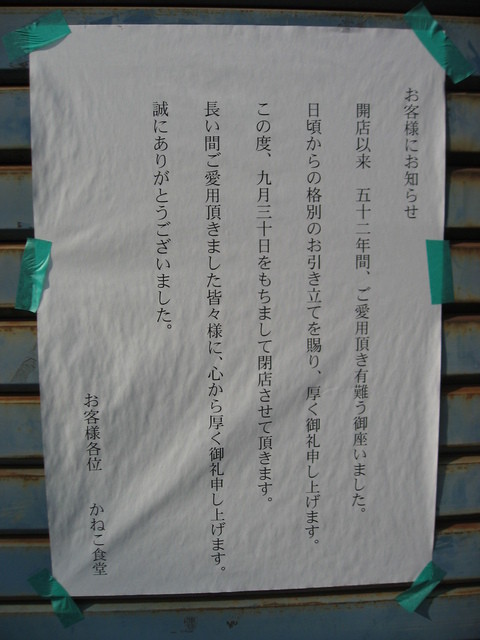 お客様にお知らせ
開店以来　五十二年間、ご愛用頂き有難う御座いました。
日頃からの格別のお引き立てを賜り、厚く御礼申し上げます。
この度、九月三十日をもちまして閉店させて頂きます。
長い間ご愛用頂きました皆々様に、心から厚く御礼申し上げます。
誠にありがとうございました。
お客様各位　かねこ食堂